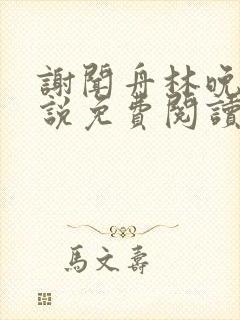 謝聞舟林晚
說免費閱讀
馬文壽